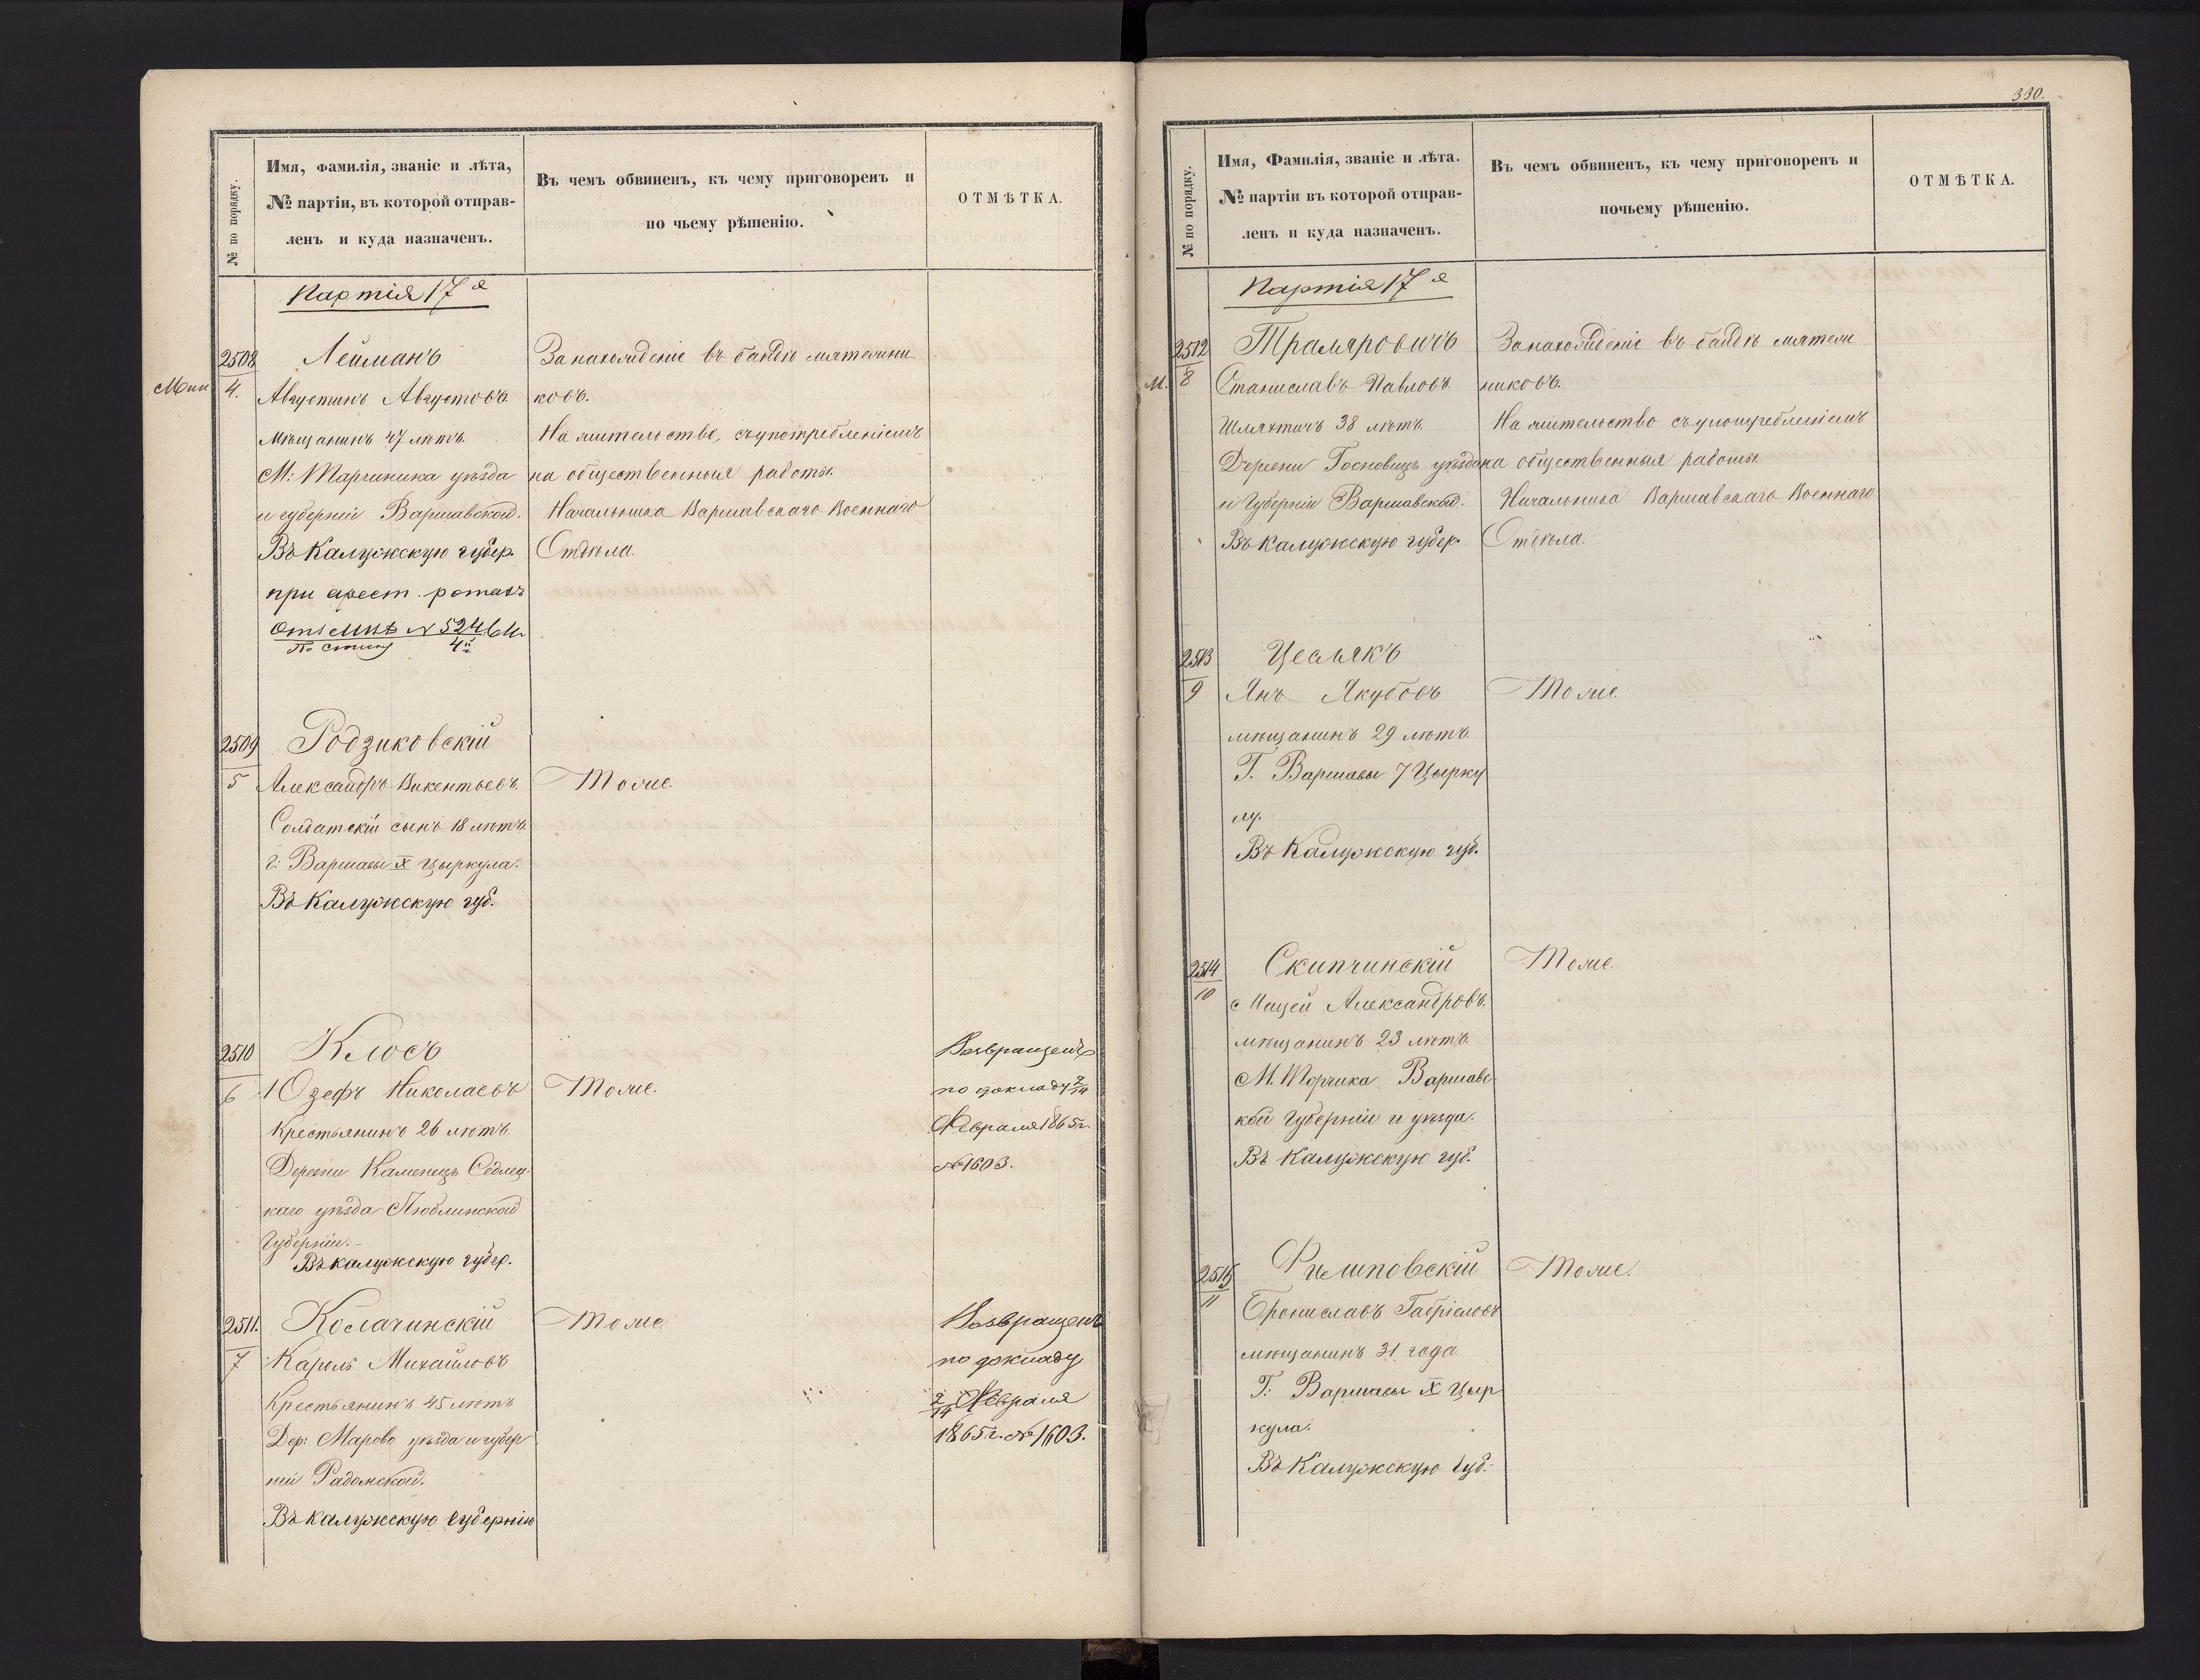 № по порядку.
Имя, фамилія, званіе и лѣта,
№ партіи, въ которой отправ-
ленъ и куда назначенъ.
Въ чемъ обвиненъ, къ чему приговоренъ и
по чьему рѣшенію.
ОТМѢТКА.
Партія 17я
2508
4.
Лейманъ
Августинъ Августовъ.
мѣщанинъ 47 лѣтъ.
М: Марчиника уѣзда
и губерніи Варшавской.
Въ Калужскую губер.
при арест. ротахъ
За нахожденіе въ бандѣ мятежни
ковъ.
На жительство, съ употребленіемъ
на общественныя работы.
Начальника Варшавскаго Военнаго
Отдѣла.
2509
5
Родзиковскій
Александръ Викентьевъ.
Солдатскій сынъ 18 лѣтъ.
г: Варшавы X Цыркула.
Въ Калужскую губ.
Тоже.
2510
6
Клосъ
Юзефъ Николаевъ
Крестьянинъ 26 лѣтъ.
Деревни Каменецъ Седлец-
каго уѣзда Люблинской
Губерніи.
Въ Калужскую губер.
Тоже.
Возвращенъ
по докладу 2/14
Февраля 1865 г.
№ 1603.
2511.
7
Косачинскій
Кароль Михайловъ
Крестьянинъ 45 лѣтъ
Дер: Марово уѣзда и губер
ніи Радомской.
Въ Калужскую Губернію
Тоже
Возвращенъ
по докладу
2/14 Февраля
1865 г. № 1603.
330.
№ по порядку.
Имя, Фамилія, званіе и лѣта.
№ партіи въ которой отправ-
ленъ и куда назначенъ.
Въ чемъ обвиненъ, къ чему приговоренъ и
почьему рѣшенію.
ОТМѢТКА.
Партія 17я
М.
2512
8
Траляровичъ
Станиславъ Павловъ.
Шляхтичъ 38 лѣтъ.
Деревни Госновицъ уѣзда
и Губерніи Варшавской.
Въ Калужскую губер.
За нахожденіе въ бандѣ мятеж
никовъ.
На жительство съ употребленіемъ
на общественныя работы.
Начальника Варшавскаго Военнаго
Отдѣла.
2513
9
Цеслякъ
Янъ Якубовъ
мѣщанинъ 29 лѣтъ.
Г. Варшавы 7 Цырку
лу.
Въ Калужскую губ.
Тоже.
2514
10
Скипчинскій
Мацей Александровъ.
мѣщанинъ 23 лѣтъ.
М. Торчика Варшавс-
кой Губерніи и уѣзда.
Въ Калужскую губ.
Тоже.
2515
11
Филиповскій
Брониславъ Габріеловъ
мѣщанинъ 31 года.
Г: Варшавы X Цыр
кула.
Въ Калужскую Губ.
Тоже.